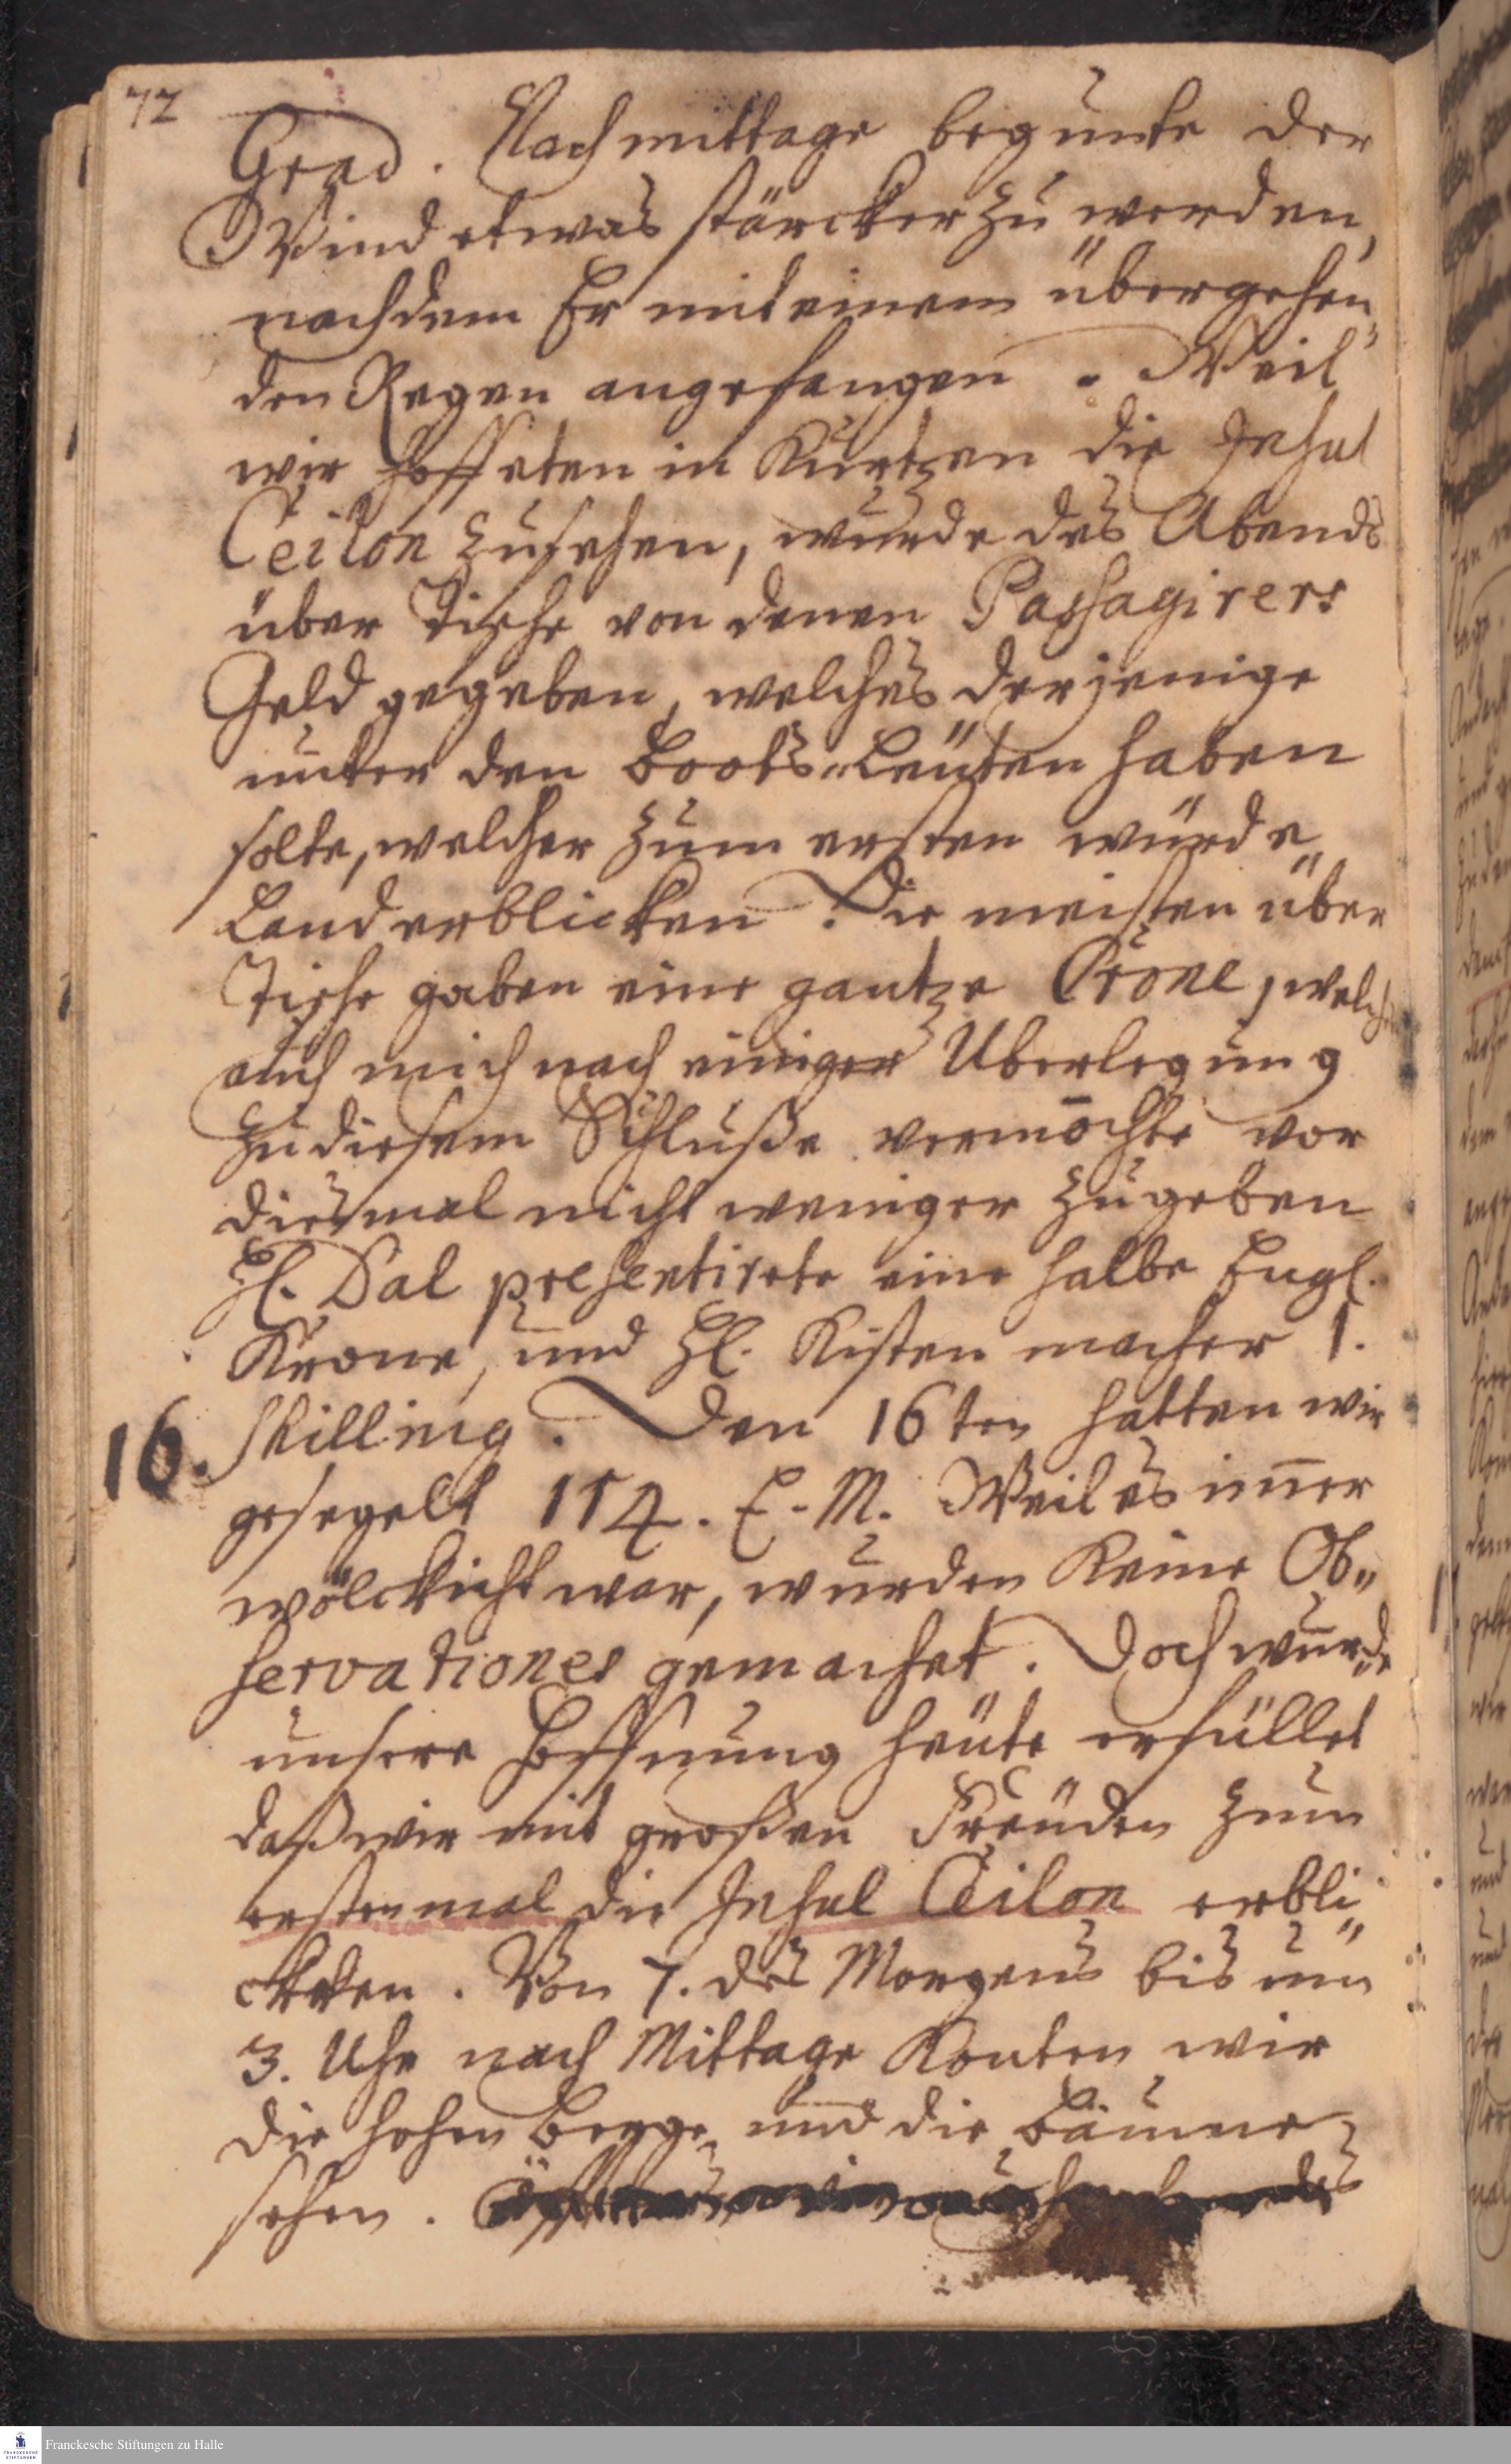 72
Grad. Nachmittage begunte der
Wind etwas stärcker zu werden,
nachdem Er mit einem übergehen„
den Regen angefangen. Weil
wir hoffeten in Kurtzen die Insul
Ceilon zusehen, wurde des Abends
über Tische von denen Passagirers
Geld gegeben, welches derjenige
unter den Boots-Leüten haben
solte, welcher zum ersten würde
Land erblicken. Die meisten über
Tische gaben eine gantze Crone, welche
auch mich nach einiger Uberlegung
zu diesem Schluße vermochte vor
diesmal nicht weniger zugeben
H. Dal presentirete eine halbe Engl.
Krone, und H. Kistenmacher 1.
16. Skilling. Den 16ten hatten wir
gesegelt 154. E. M. Weil es im̄er
wölckicht war, wurden keine Ob„
servationes gemachet. Doch wurde
unsere Hoffnung heüte erfüllet
daß wir mit großen Freüden zum
erstenmal die Insul Ceilon erbli„
ckten. Von 7. des Morgens bis um
3. Uhr nach Mittage konten wir
die hohen Berge und die Bäume
sehen.
Franckesche Stiftungen zu Halle